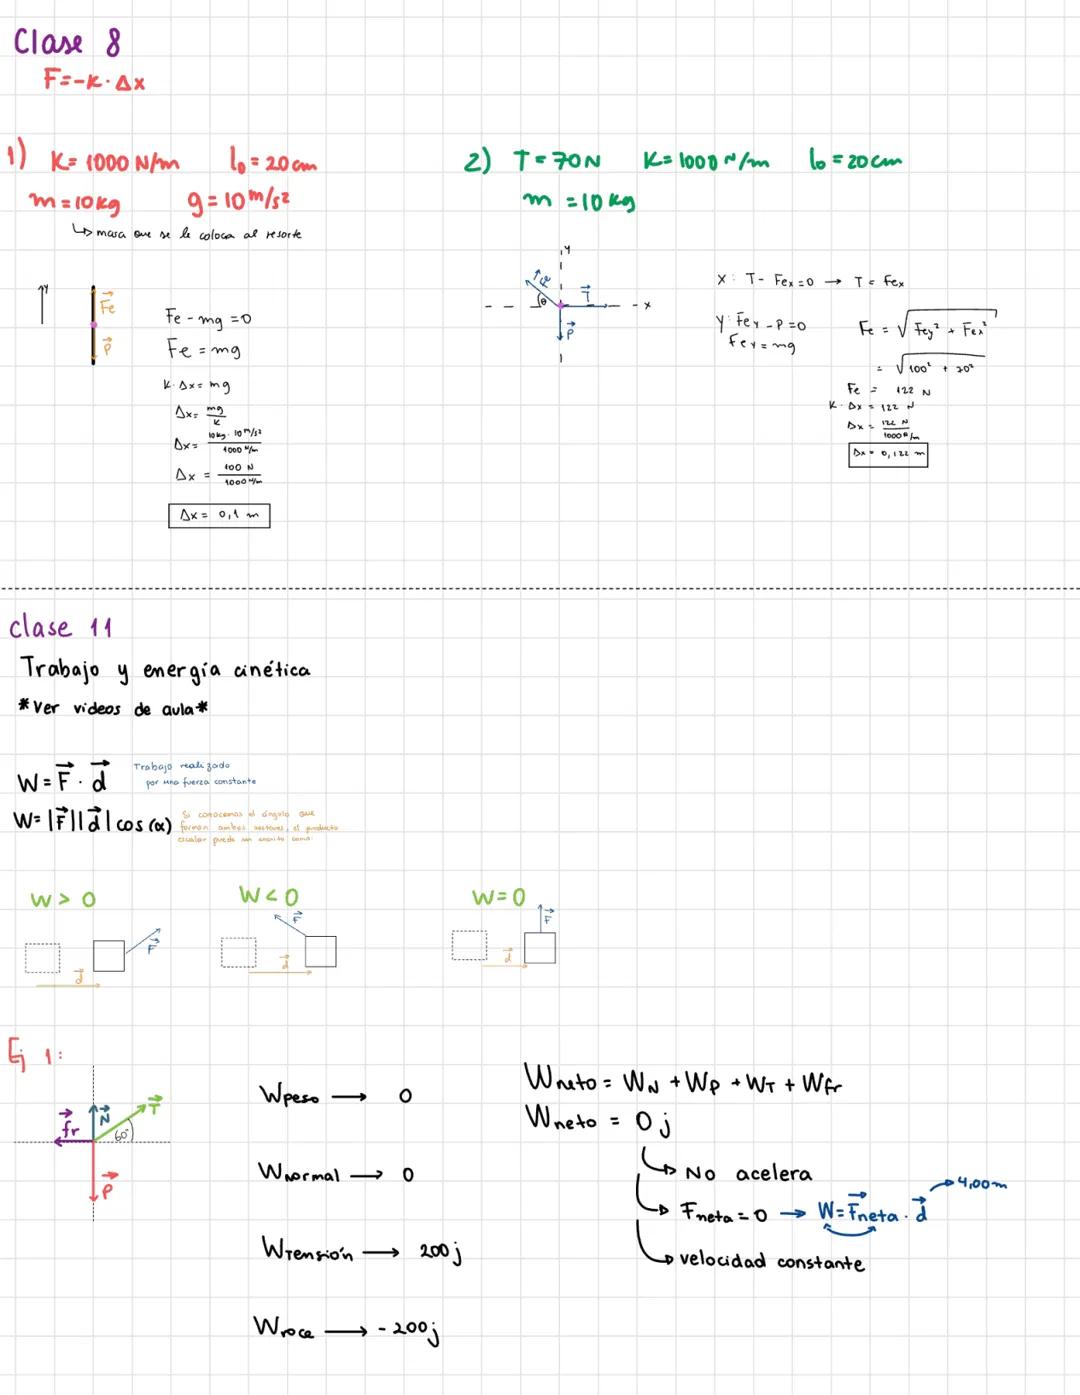 Clase 8
F=-K·Δx
1) K= 1000 N/m l₀= 20cm
m=10kg g=10m/s²
↳ masa que se le coloca al resorte
y
Fe
P
Fe - mg =0
Fe = mg
K·Δx= mg
Δx= mg/K
Δx= 10kg·10m/s² / 1000N/m
Δx = 100 N / 1000N/m
Δx= 0,1 m
2) T=70N K=1000N/m l₀=20cm
m =10kg
y
Fe
θ
T
x
P
X: T- Fex=0 → T= fex
Y: Fey -P=0
Fey=mg
Fe = √Fey² + Fex²
= √100² + 70²
Fe = 122 N
K·Δx = 122 N
Δx = 122 N / 1000N/m
Δx= 0,122 m
clase 11
Trabajo y energía cinética
*Ver videos de aula*
W=F·d Trabajo realizado
por una fuerza constante
W=|F||d|cos(α) Si conocemos el ángulo que
forman ambos vectores, el producto
escalar puede ser escrito como:
W > 0 W<0 W=0
F d
F d
F d
Ej 1:
fr N T
60°
P
Wpeso → 0
Wnormal → 0
WTensión → 200j
Wroce → -200j
Wneto= WN +WP +WT + Wfr
Wneto = 0j
↳ No acelera
↳ Fneta=0 → W=Fneta·d → 4,00m
↳ velocidad constante